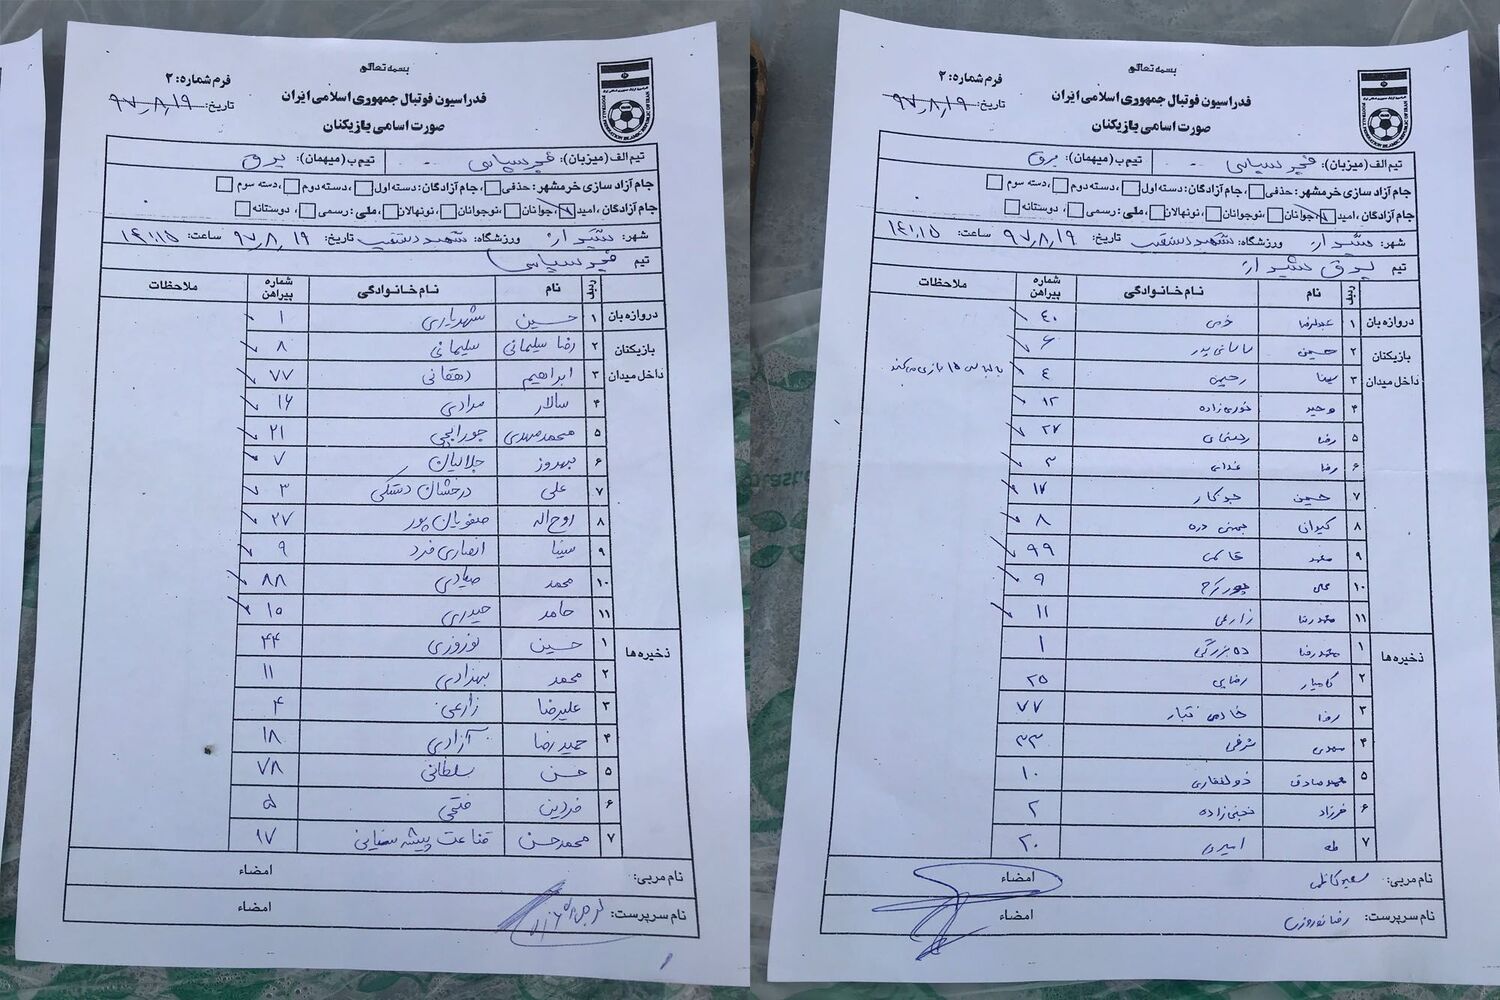 بسمه تعالی
فرم شماره: ۲
فدراسیون فوتبال جمهوری اسلامی ایران
تاریخ: ۹۷٫۸٫۱۹
صورت اسامی بازیکنان
تیم الف (میزبان): فجر سپاسی تیم ب (میهمان): برق
جام آزاد سازی خرمشهر: حذفی، جام آزادگان: دسته اول، دسته دوم، دسته سوم
جام آزادگان، امید، جوانان، نوجوانان، نونهالان، ملی: رسمی، دوستانه
شهر: شیراز ورزشگاه: شهید دستغیب تاریخ: ۹۷٫۸٫۱۹ ساعت: ۱۴:۱۵
تیم فجر سپاسی
ردیف نام نام خانوادگی شماره پیراهن ملاحظات
دروازه بان ۱ حسین شهریاری ۱
بازیکنان ۲ رضا سلیمانی سلیمانی ۸
داخل میدان ۳ ابراهیم دهقانی ۷۷
۴ سالار مرادی ۱۶
۵ محمدمهدی جورابچی ۲۱
۶ بهروز جلالیان ۷
۷ علی درخشان دشتکی ۳
۸ روح اله صفویان پور ۲۷
۹ سینا انصاری فرد ۹
۱۰ محمد صیادی ۸۸
۱۱ حامد حیدری ۱۵
ذخیره ها ۱ حسین نوروزی ۴۴
۲ محمد بهزادی ۱۱
۳ علیرضا زارعی ۴
۴ حمیدرضا آزادی ۱۸
۵ حسن سلطانی ۷۸
۶ فردین فتحی ۵
۷ محمدحسن قناعت پیشه سنایی ۱۷
نام مربی: امضاء
نام سرپرست: امضاء
بسمه تعالی
فرم شماره: ۲
فدراسیون فوتبال جمهوری اسلامی ایران
تاریخ: ۹۷٫۸٫۱۹
صورت اسامی بازیکنان
تیم الف (میزبان): فجر سپاسی تیم ب (میهمان): برق
جام آزاد سازی خرمشهر: حذفی، جام آزادگان: دسته اول، دسته دوم، دسته سوم
جام آزادگان، امید، جوانان، نوجوانان، نونهالان، ملی: رسمی، دوستانه
شهر: شیراز ورزشگاه: شهید دستغیب تاریخ: ۹۷٫۸٫۱۹ ساعت: ۱۴:۱۵
تیم برق شیراز
ردیف نام نام خانوادگی شماره پیراهن ملاحظات
دروازه بان ۱ عبدلرضا ۴۰
بازیکنان ۲ حسین ۶
داخل میدان ۳ سینا رحیمی ۴ با لباس ۱۵ بازی میکند
۴ وحید نوری زاده ۱۲
۵ رضا رهنمای ۲۷
۶ رضا خدایی ۳
۷ حسین جوکار ۱۷
۸ کیوانی ۸
۹ قاسمی ۹۹
۱۰ علی ۹
۱۱ محمدرضا زارعی ۱۱
ذخیره ها ۱ محمدرضا ده بزرگی ۱
۲ کامیار رضایی ۲۵
۳ رضا خادمی تبار ۷۷
۴ مهدی شرفی ۳۳
۵ محمدصادق ذولفقاری ۱۰
۶ فرزاد نجفی زاده ۲
۷ طه امیری ۲۰
نام مربی: سعید کاظمی امضاء
نام سرپرست: رضا نوروزی امضاء